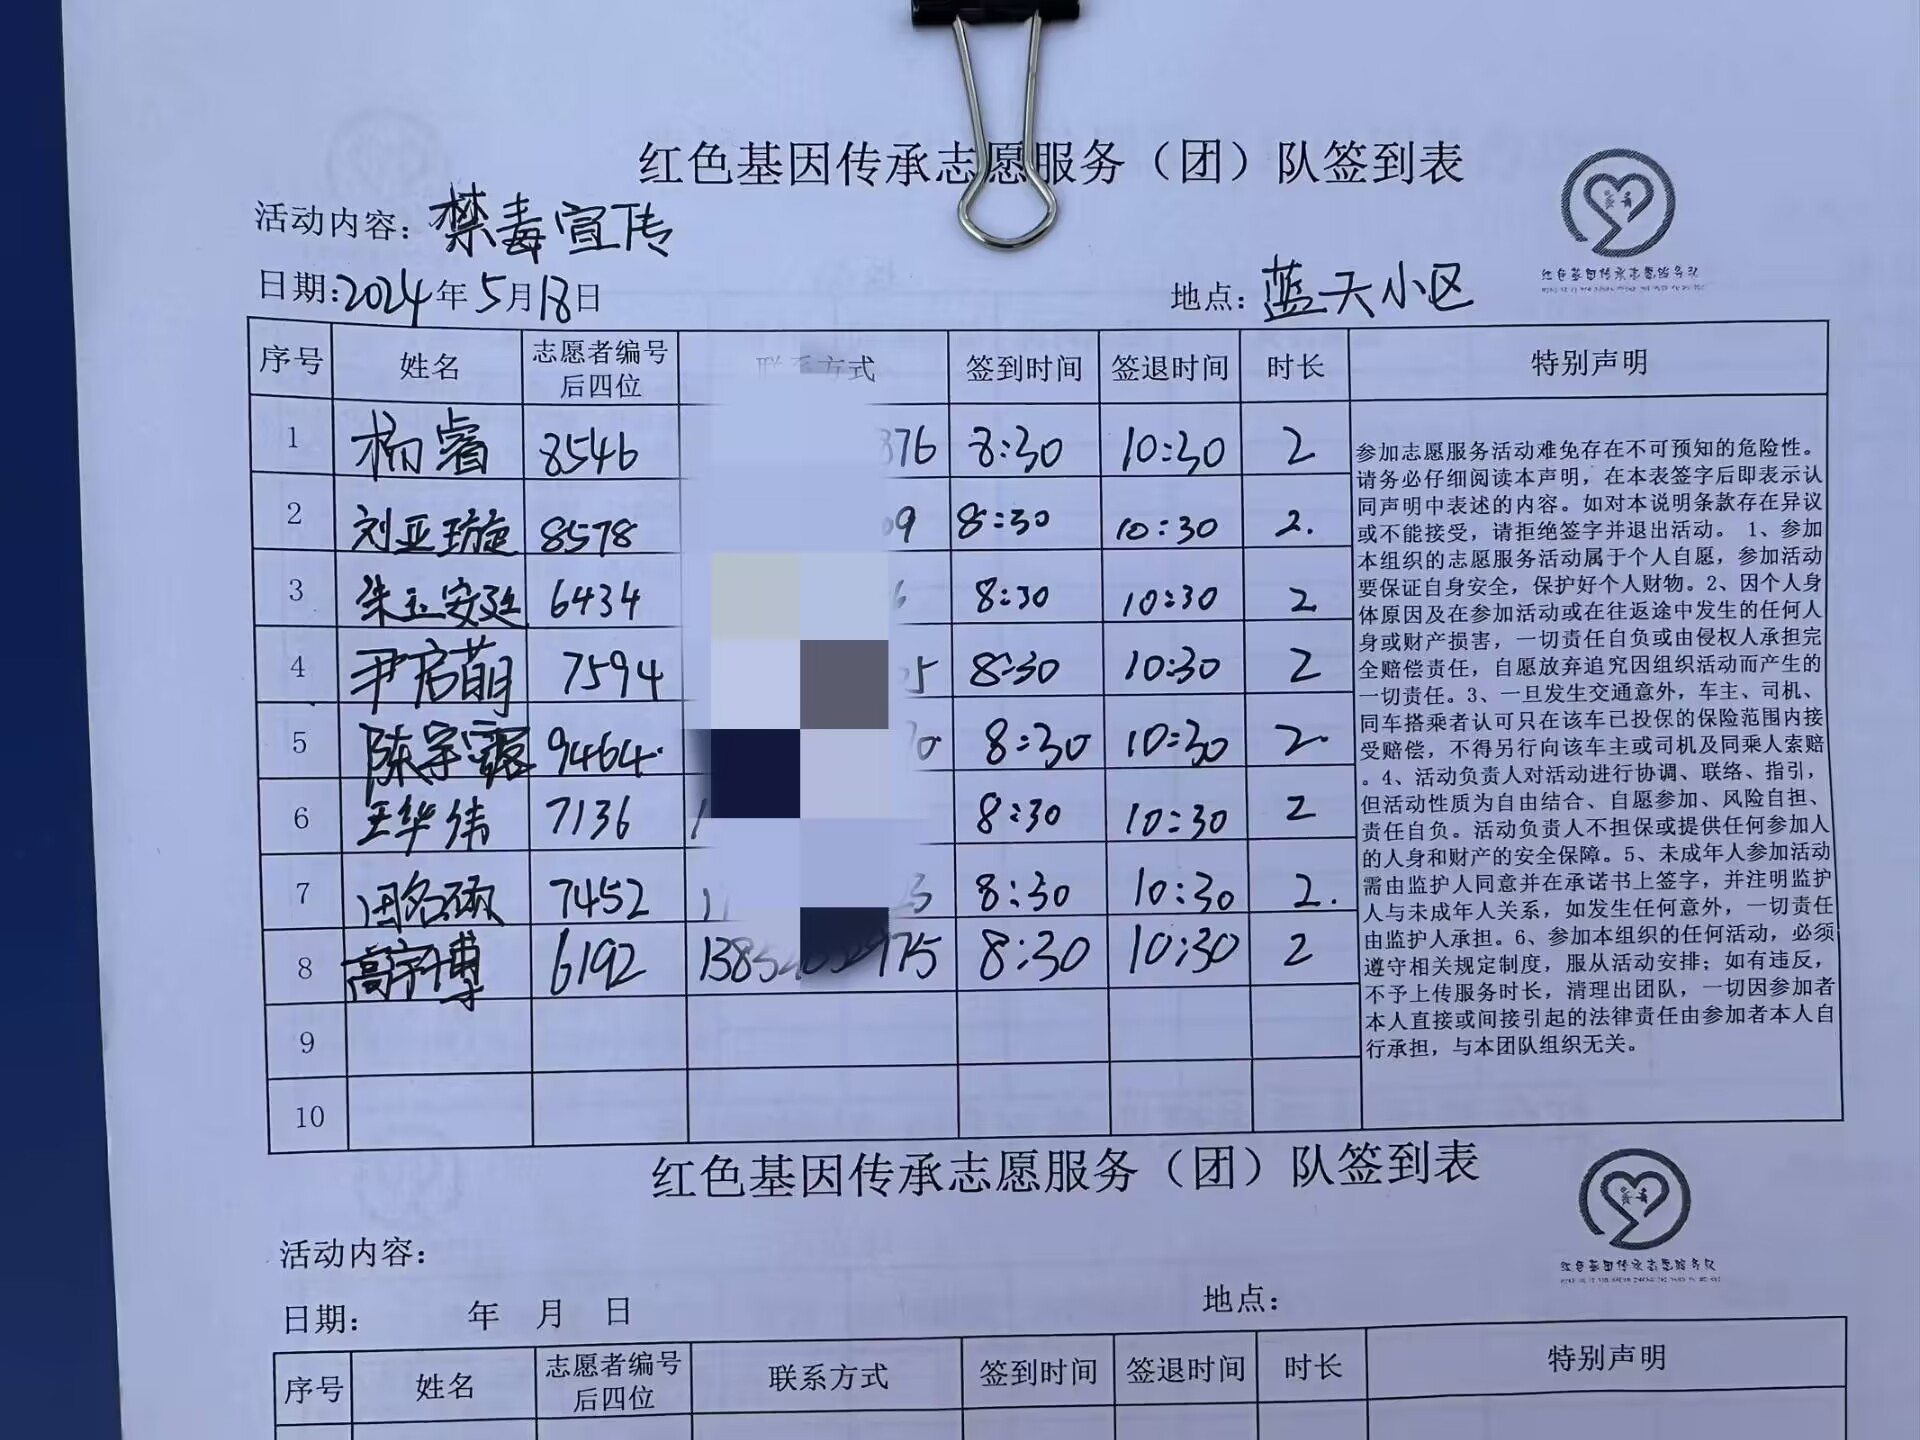 红色基因传承志愿服务（团）队签到表
活动内容：禁毒宣传
日期:2024年5月18日
地点：蓝天小区
红色基因传承志愿服务队
序号 姓名 志愿者编号后四位 联系方式 签到时间 签退时间 时长 特别声明
1 杨睿 8546 376 8:30 10:30 2
2 刘亚璇 8578 09 8:30 10:30 2.
3 朱玉安廷 6434 8:30 10:30 2
4 尹启萌 7594 5 8:30 10:30 2
5 陈宇露 9464. 70 8:30 10:30 2.
6 王华伟 7136 1 8:30 10:30 2
7 7452 3 8:30 10:30 2.
8 高宇博 6192 975 8:30 10:30 2
9
10
参加志愿服务活动难免存在不可预知的危险性。
请务必仔细阅读本声明，在本表签字后即表示认
同声明中表述的内容。如对本说明条款存在异议
或不能接受，请拒绝签字并退出活动。 1、参加
本组织的志愿服务活动属于个人自愿，参加活动
要保证自身安全，保护好个人财物。2、因个人身
体原因及在参加活动或在往返途中发生的任何人
身或财产损害，一切责任自负或由侵权人承担完
全赔偿责任，自愿放弃追究因组织活动而产生的
一切责任。3、一旦发生交通意外，车主、司机、
同车搭乘者认可只在该车已投保的保险范围内接
受赔偿，不得另行向该车主或司机及同乘人索赔
。4、活动负责人对活动进行协调、联络、指引，
但活动性质为自由结合、自愿参加、风险自担、
责任自负。活动负责人不担保或提供任何参加人
的人身和财产的安全保障。5、未成年人参加活动
需由监护人同意并在承诺书上签字，并注明监护
人与未成年人关系，如发生任何意外，一切责任
由监护人承担。6、参加本组织的任何活动，必须
遵守相关规定制度，服从活动安排；如有违反，
不予上传服务时长，清理出团队，一切因参加者
本人直接或间接引起的法律责任由参加者本人自
行承担，与本团队组织无关。
红色基因传承志愿服务（团）队签到表
活动内容：
日期： 年 月 日
地点：
红色基因传承志愿服务队
序号 姓名 志愿者编号后四位 联系方式 签到时间 签退时间 时长 特别声明